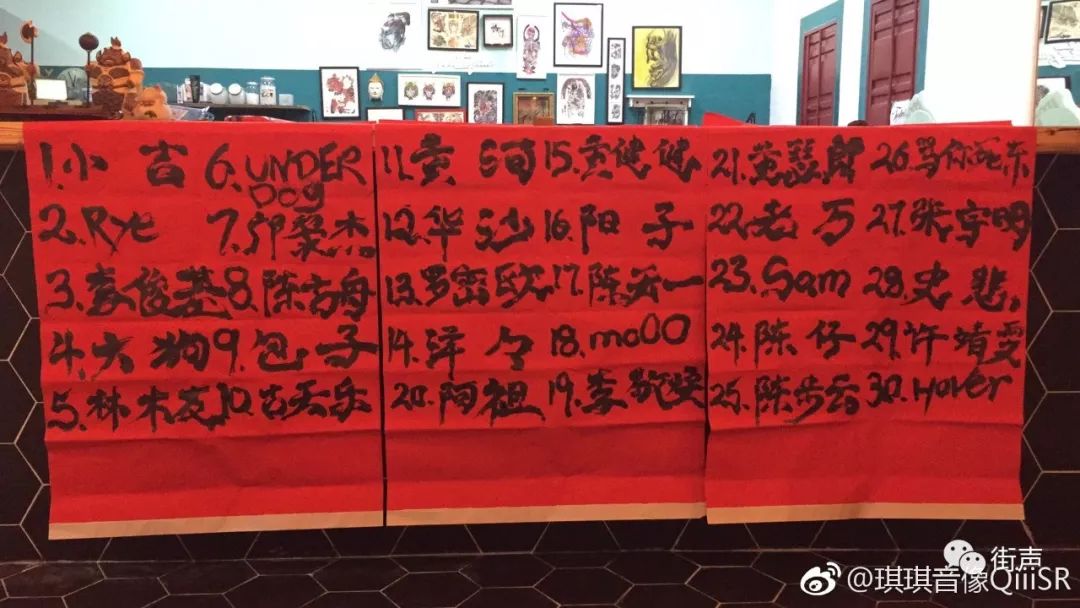 1.小吉
2.Rye
3.俊基
4.大狗
5.林木友
6.UNDER
DOG
7.杰
8.陈方舟
9.包子
10.古天乐
11.黄
12.华沙
13.罗密欧
14.洋々
20.阿祖
15.黄健健
16.阳子
17.陈天一
18.moOO
19.李
21.黄
22.老万
23.Sam
24.陈仔
25.陈步云
26.骂你
27.张宇明
28.史悲
29.许靖雯
30.Hover
街声
@琪琪音像QiiiSR